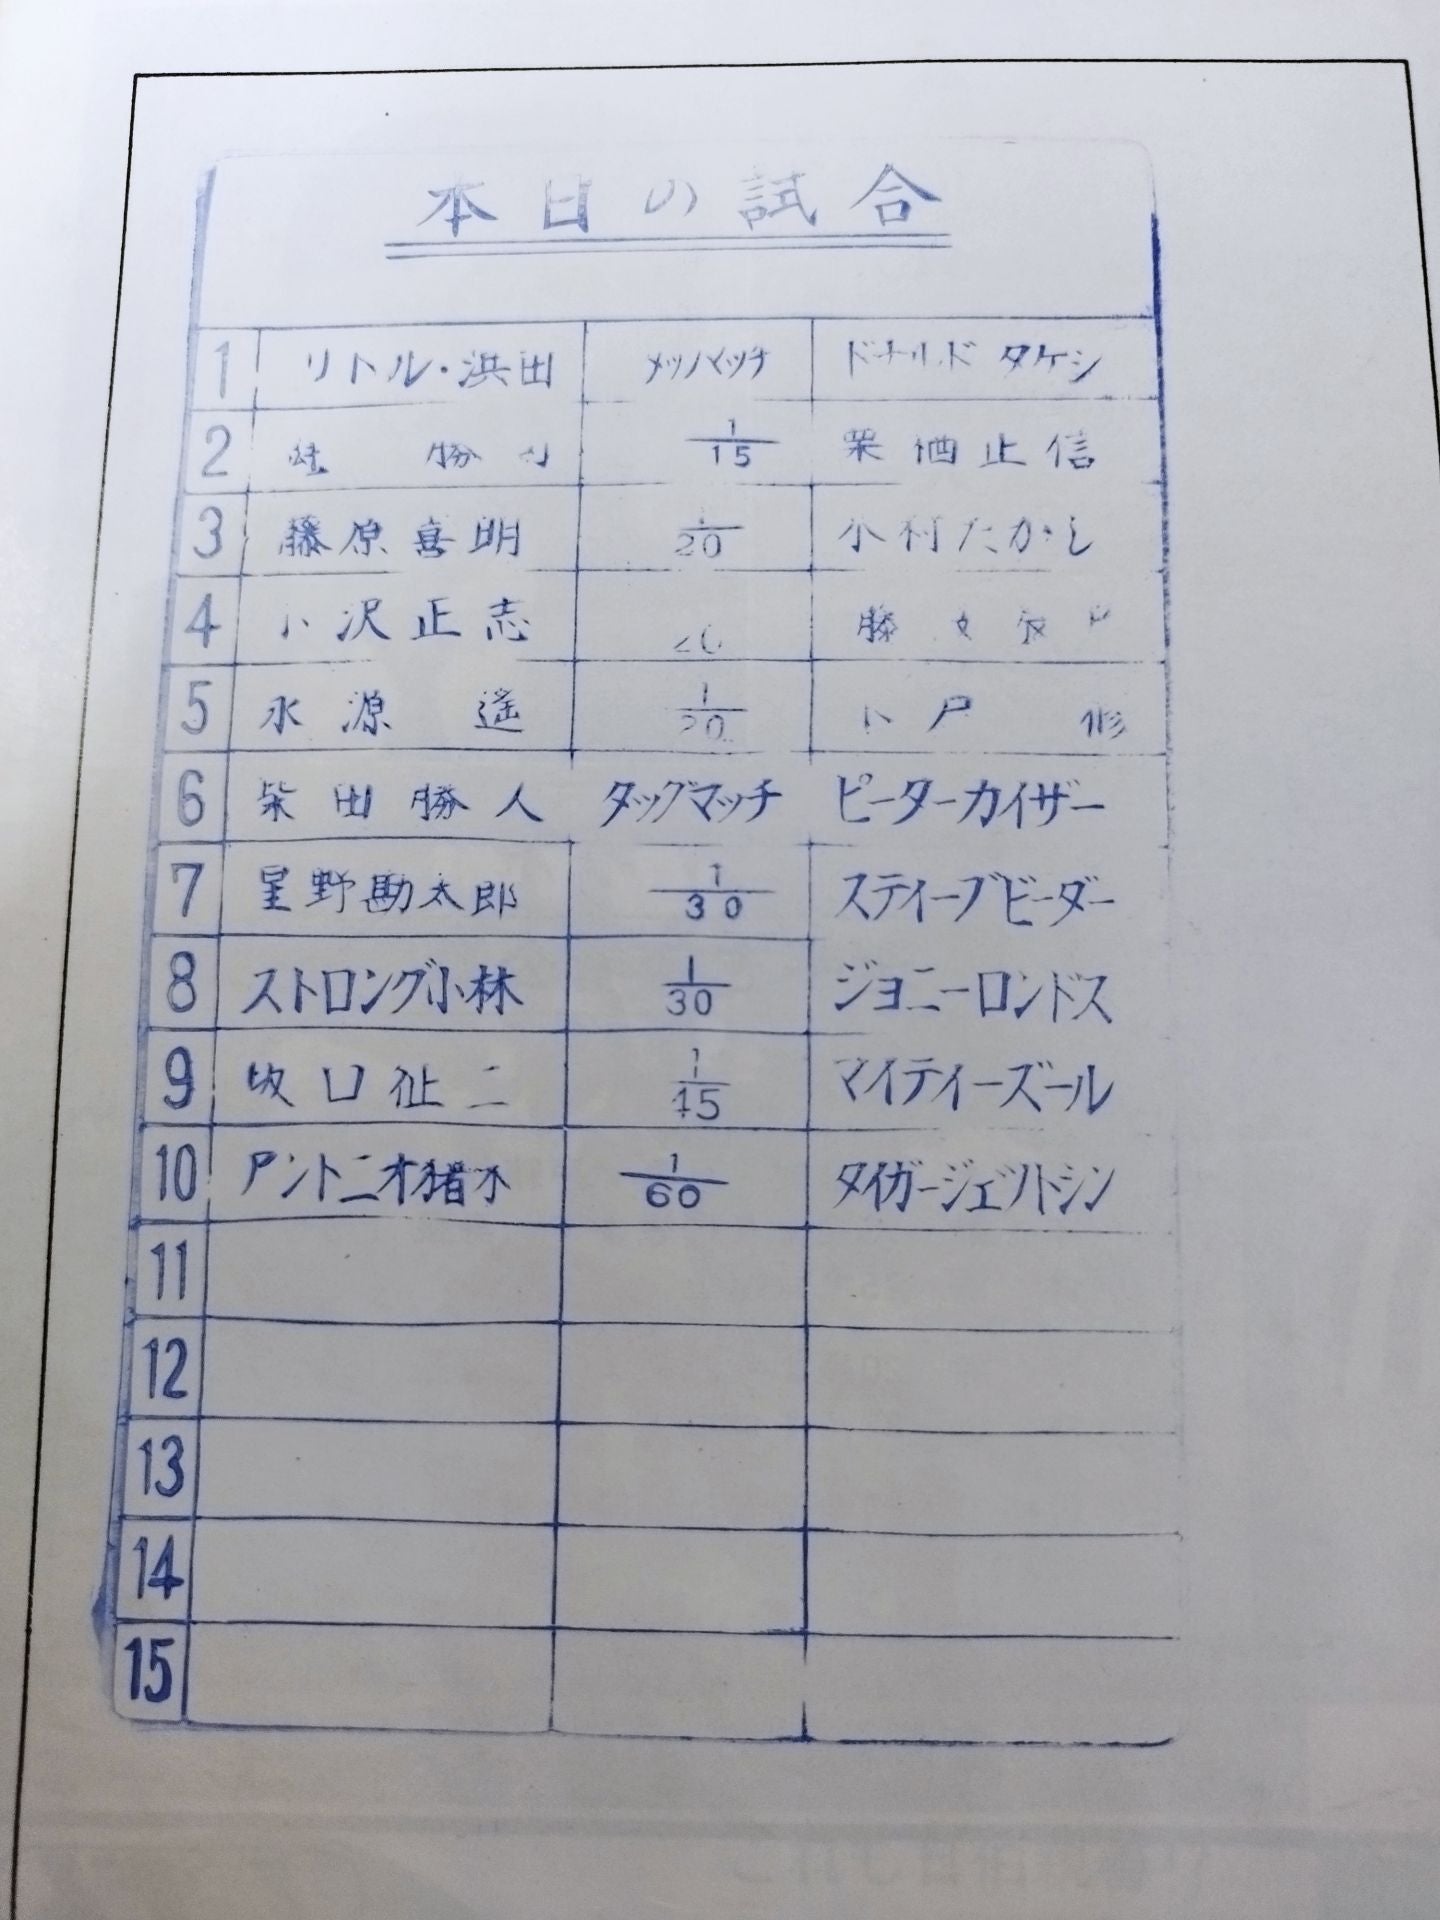 本日の試合
1 リトル・浜田 メッハマッチ ドナルドタケシ
2 勝 1/15 栗栖正信
3 藤原喜明 1/20 木村たかし
4 小沢正志 20 藤
5 永源遙 1/20 木戸修
6 柴田勝人 タッグマッチ ピーターカイザー
7 星野勘太郎 1/30 スティーブビーダー
8 ストロング小林 1/30 ジョニーロンドス
9 坂口征二 1/45 マイティーズール
10 アントニオ猪木 1/60 タイガージェットシン
11
12
13
14
15